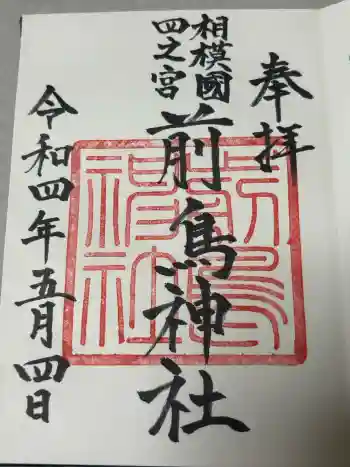 奉拝
相模國
四之宮
前鳥神社
令和四年五月四日
前鳥
神社